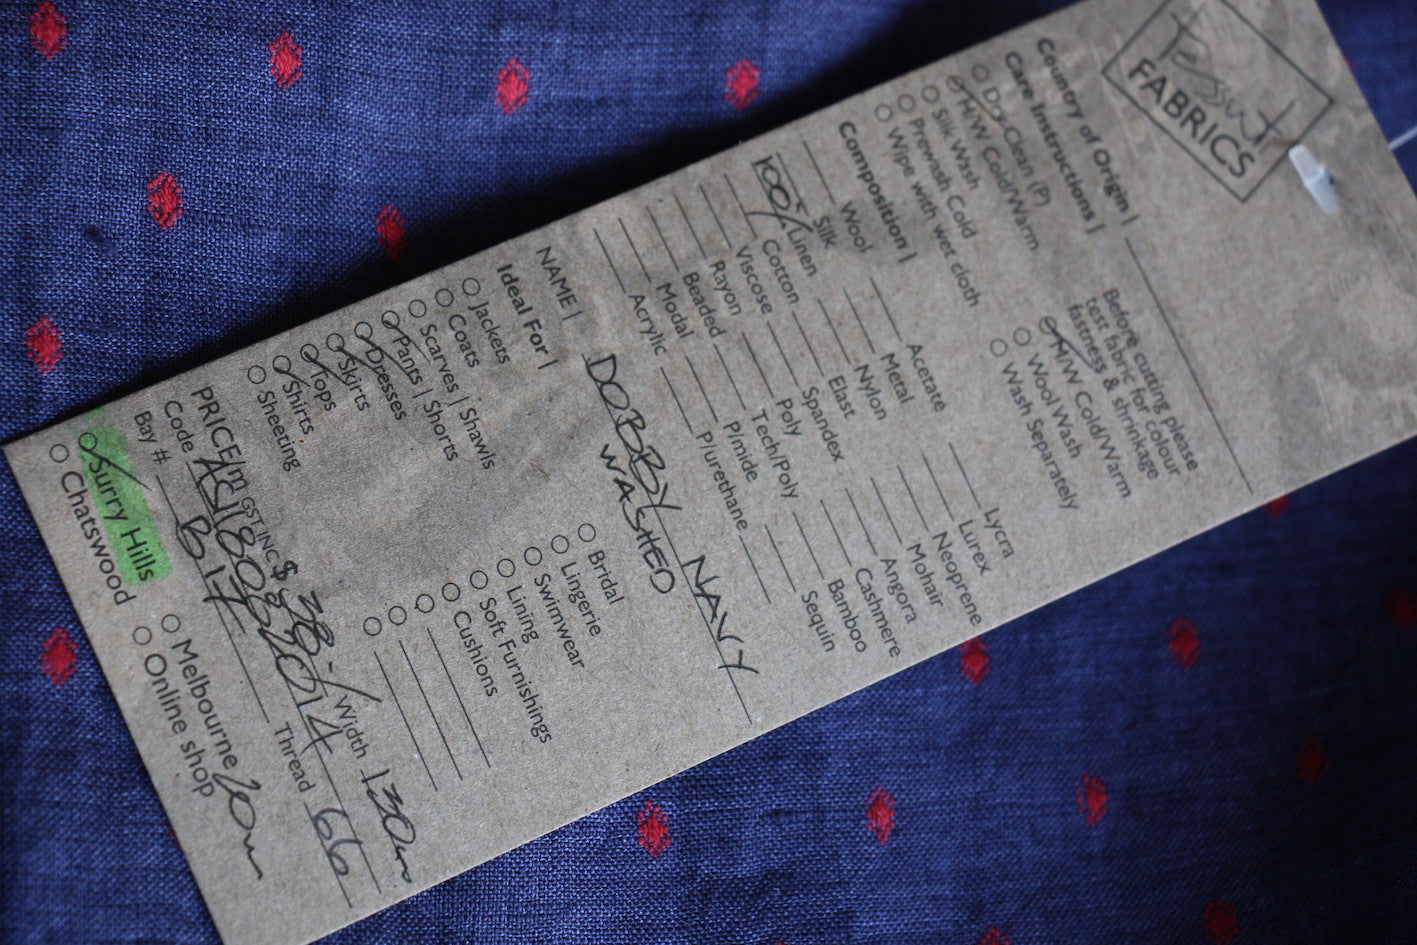 Tessuti
FABRICS
Country of Origin |
Care Instructions |
Before cutting please
test fabric for colour
fastness & shrinkage
Dry-Clean (P)
H/W Cold/Warm
Silk Wash
Prewash Cold
Wipe with wet cloth
H/W Cold/Warm
Wool Wash
Wash Separately
Composition |
Wool
Silk
100% Linen
Cotton
Viscose
Rayon
Beaded
Modal
Acrylic
Acetate
Metal
Nylon
Elast
Spandex
Poly
Tech/Poly
P/nide
P/urethane
Lycra
Lurex
Neoprene
Mohair
Angora
Cashmere
Bamboo
Sequin
NAME | DOBBY NAVY
WASHED
Ideal For |
Jackets
Coats
Scarves | Shawls
Pants | Shorts
Dresses
Skirts
Tops
Shirts
Sheeting
Bridal
Lingerie
Swimwear
Lining
Soft Furnishings
Cushions
PRICE/m GST INC $ 38-/ Width 130cm
Code Thread 66
Bay # B17
Surry Hills
Chatswood
Melbourne
Online shop